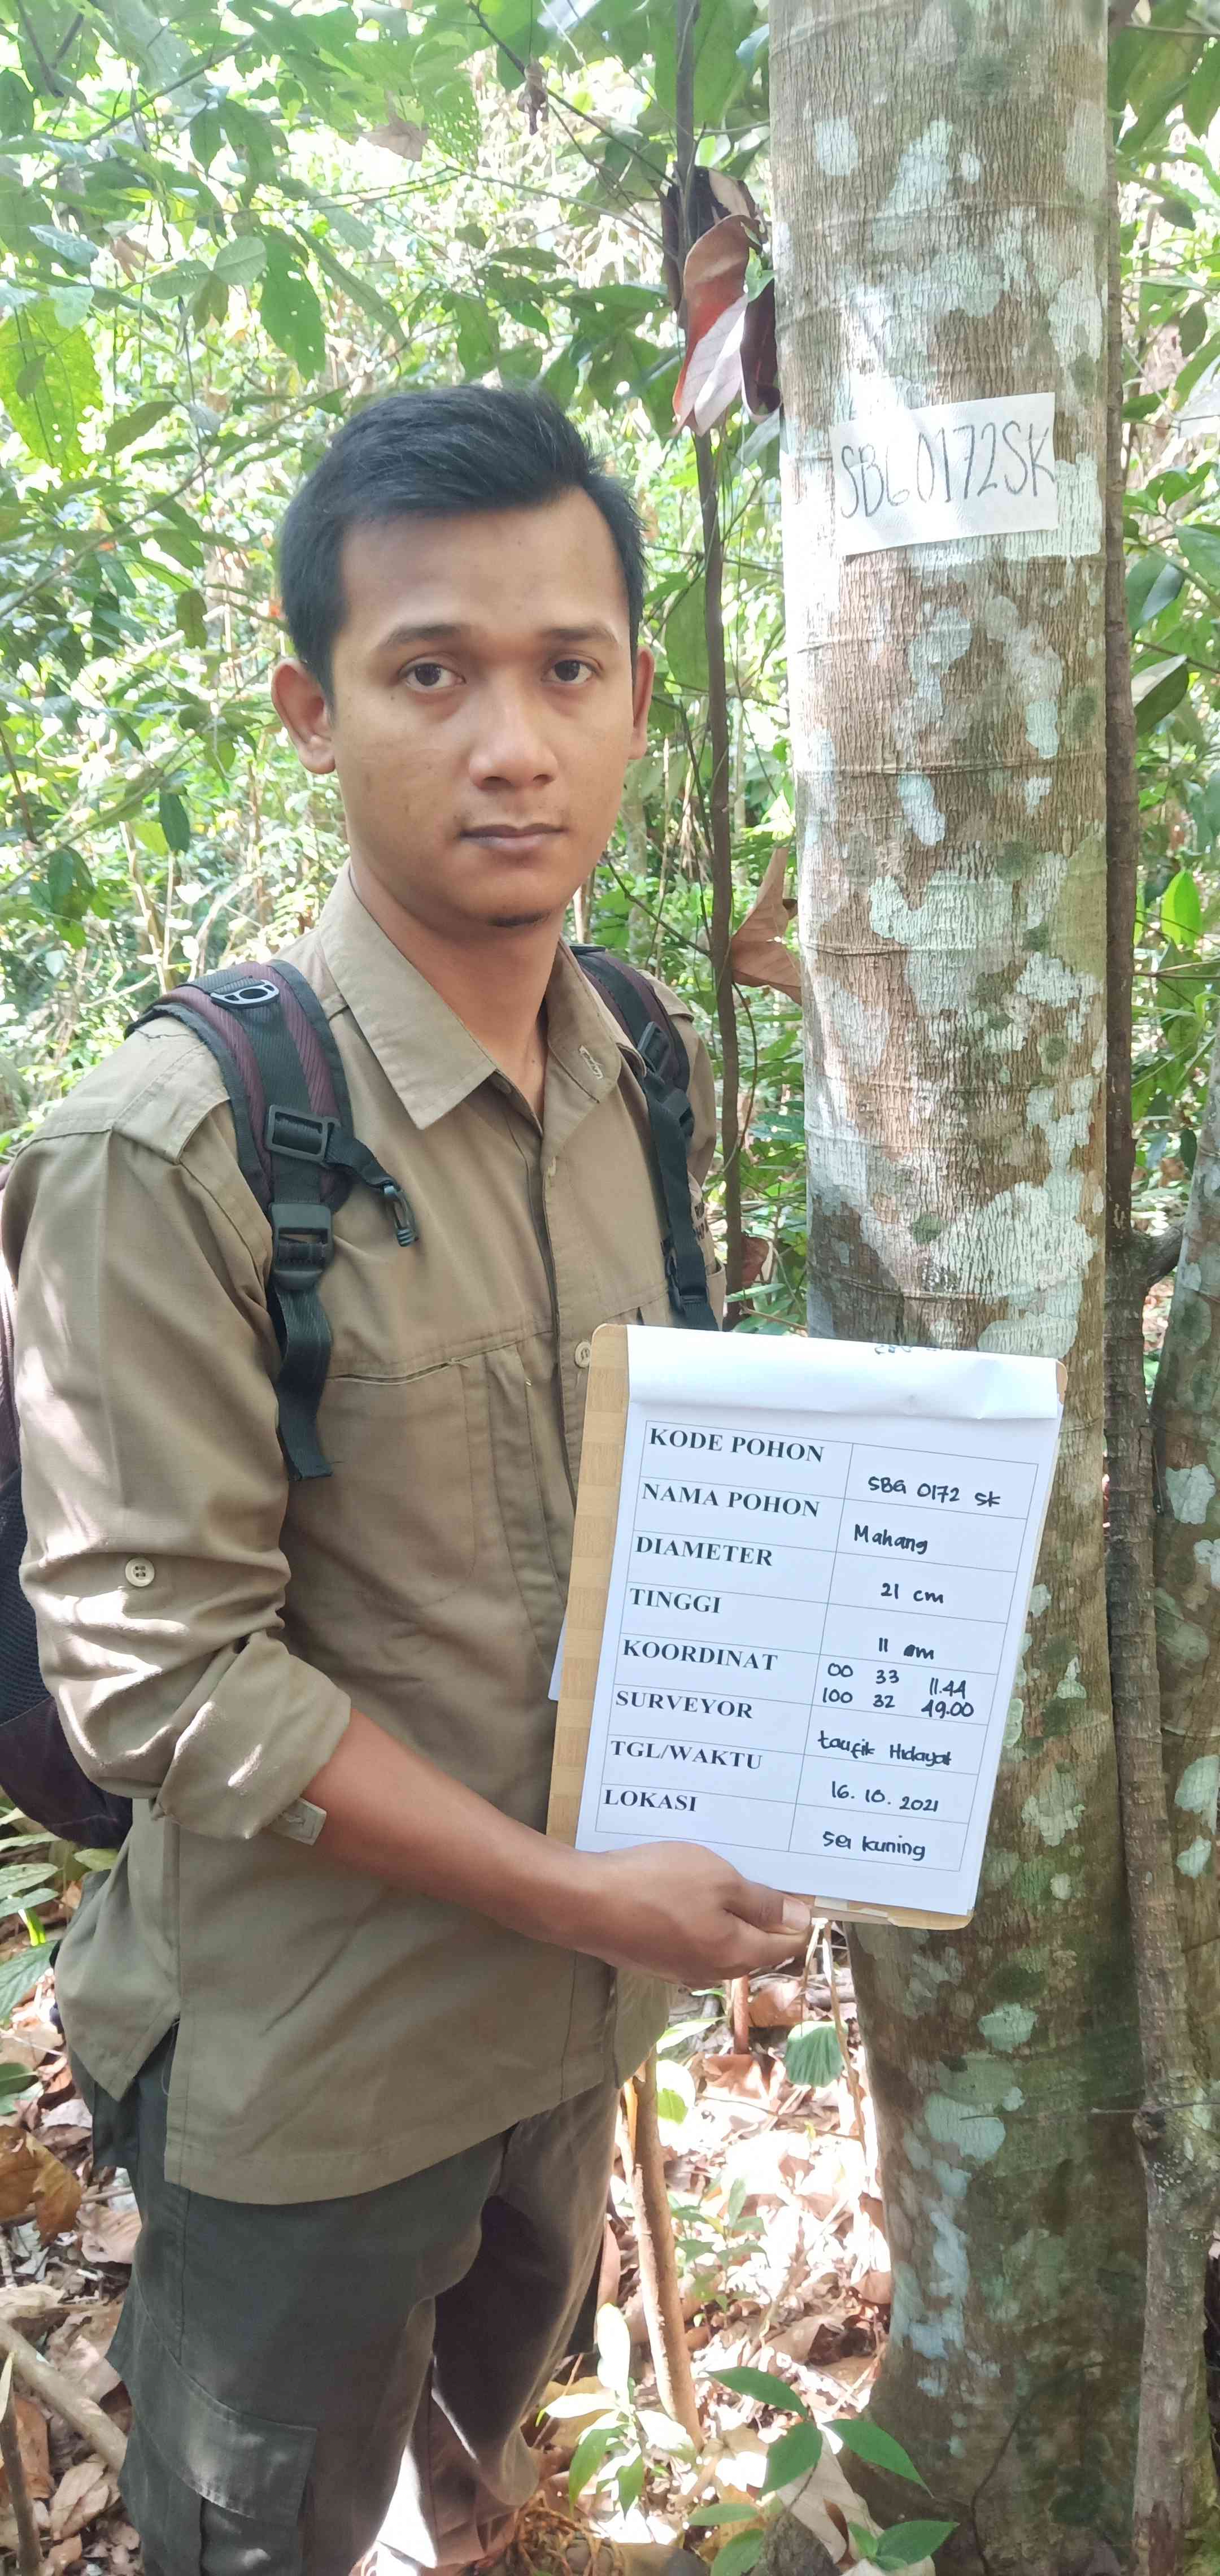 SBG 0172SK
KODE POHON SBG 0172 SK
NAMA POHON Mahang
DIAMETER 21 cm
TINGGI 11 m
KOORDINAT 00 33 11.44
100 32 49.00
SURVEYOR taufik Hidayat
TGL/WAKTU 16. 10. 2021
LOKASI Sei kuning